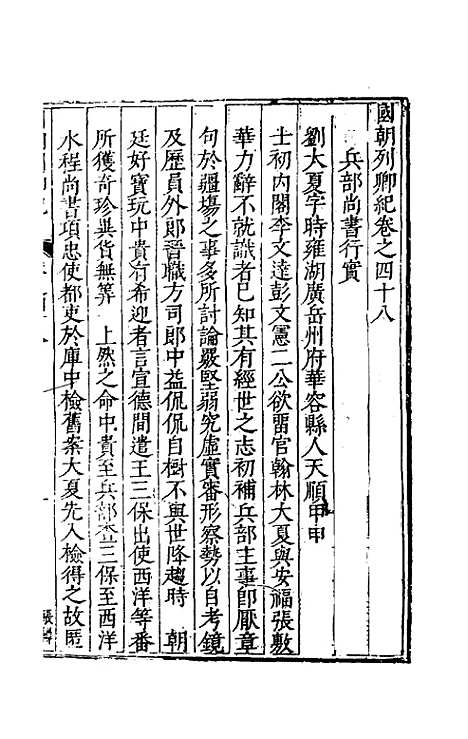 國朝列卿紀卷之四十八
兵部尚書行實
劉大夏字時雍湖廣岳州府華容縣人天順甲申
士初內閣李文達彭文憲二公欲畱官翰林大夏與安福張敷
華力辭不就識者已知其有經世之志初補兵部主事卽厭章
句於疆場之事多所討論嚴堅弱究虛實審形察勢以自考鏡
及歷員外郎晉職方司郎中益侃侃自樹不與世降趨時 朝
廷好寶玩中貴有希迎者言宣德間遣王三保出使西洋等番
所獲奇珍異貨無筭 上然之命中貴至兵部查三保至西洋
水程尚書項忠使都吏於庫中檢舊案大夏先入檢得之故匿